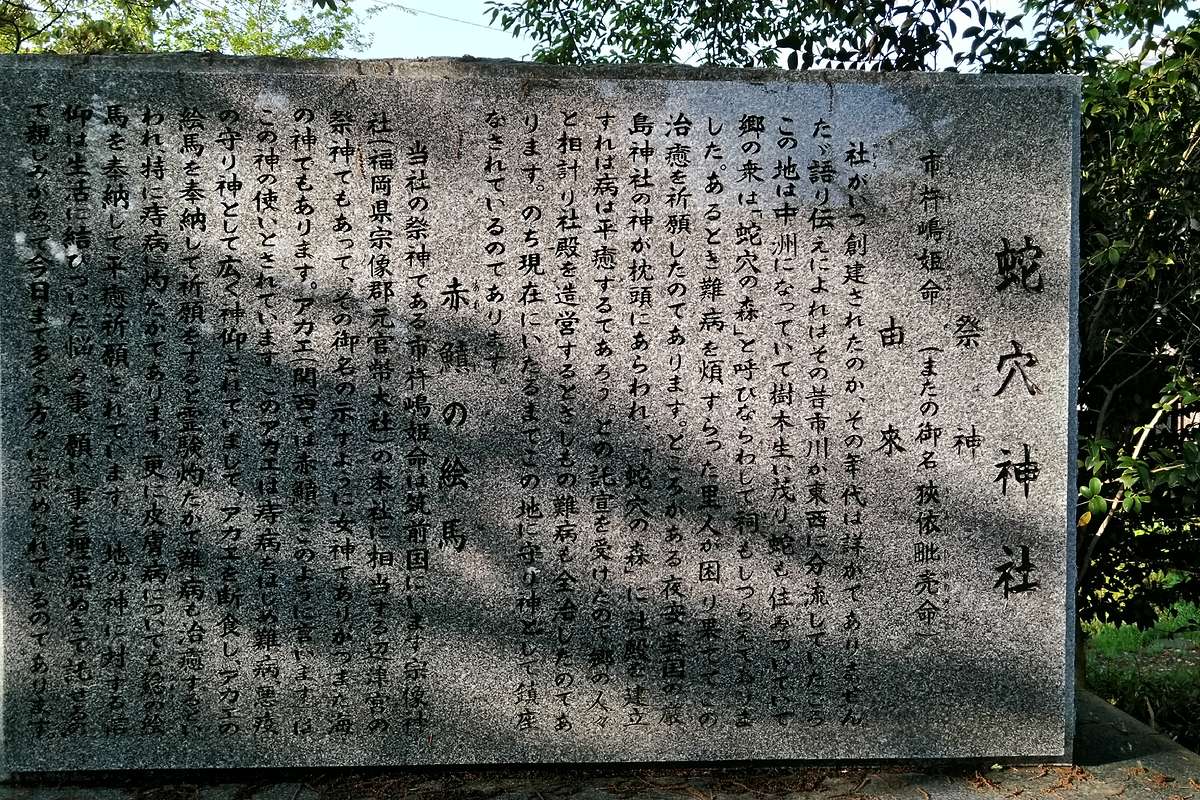 蛇穴神社
祭神
市杵嶋姫命 (またの御名 狭依毗売命)
由來
社がいつ創建されたのか、その年代は詳かでありません
たゞ語り伝えによればその昔市川が東西に分流していたころ
この地は中洲になっていて樹木生い茂り蛇も住みついていて
郷の衆は「蛇穴の森」と呼びならわして祠もしつらえてありま
した。あるとき難病を煩すらった里人が困り果ててこの
治癒を祈願したのであります。ところがある夜安芸国の厳
島神社の神が枕頭にあらわれ「蛇穴の森」に社殿を建立
すれば病は平癒するであろう」との託宣を受けたので郷の人々
と相計り社殿を造営するとさしもの難病も全治したのであ
ります。のち現在にいたるまでこの地に守り神として鎮座
なされているのであります。
赤鱏の絵馬
当社の祭神である市杵嶋姫命は筑前国にいます宗像神
社(福岡県宗像郡元官幣大社)の本社に相当する辺津宮の
祭神でもあって、その御名の示すように女神でありかつまた海
の神でもあります。アカエ(関西では赤顔をこのように言います)は
この神の使いとされています。このアカエは痔病をはじめ難病悪疫
の守り神として広く神仰されていまして、アカエを断食しアカエの
絵馬を奉納して祈願をすると霊験灼たかで難病も治癒するとい
われ特に痔病に灼たかであります更に皮膚病についても鯰の絵
馬を奉納して平癒祈願されています。此の神に対する信
仰は生活に結びついた悩みの事、願い事を理屈ぬきで託せるの
て親しみがあって今日まで多くの方々に崇められているのであります。